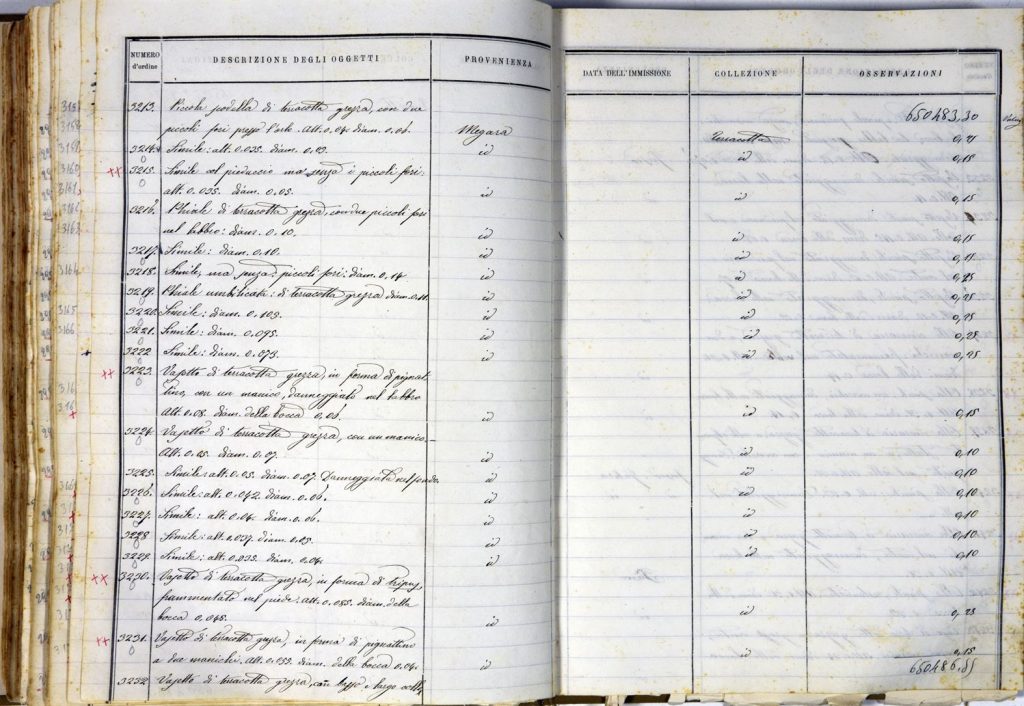 NUMERO d'ordine DESCRIZIONE DEGLI OGGETTI PROVENIENZA DATA DELL'IMMISSIONE COLLEZIONE OSSERVAZIONI
650483,30
3213. Piccola padella di terracotta grezza, con due
piccoli fori presso l'orlo. Alt. 0.04 diam. 0.06. Megara Terracotta 0,21
3214. Simile: alt. 0.035. diam. 0.09. id id 0,15
3215. Simile col pieduccio ma senza i piccoli fori:
alt. 0.035. diam. 0.05. id id 0,15
3216. Phiale di terracotta grezza, con due piccoli fori
nel labbro: diam. 0.10. id id 0,15
3217. Simile: diam. 0.10. id id 0,15
3218. Simile, ma senza i piccoli fori: diam. 0.14 id id 0,25
3219. Phiale umbilicata: di terracotta grezza diam. 0.11. id id 0,25
3220. Simile: diam. 0.103. id id 0,25
3221. Simile: diam. 0.095. id id 0,25
3222 Simile: diam. 0.073. id id 0,25
3223. Vasetto di terracotta grezza, in forma di pignat-
tino, con un manico, danneggiato nel labbro
Alt. 0.08. diam. della bocca 0.06. id id 0,15
3224. Vasetto di terracotta grezza, con un manico.
Alt. 0.05. diam. 0.07. id id 0,10
3225. Simile: alt. 0.05. diam. 0.07. Danneggiata nel fondo. id id 0,10
3226. Simile: alt. 0.042. diam. 0.06. id id 0,10
3227. Simile: alt. 0.04. diam. 0.06. id id 0,10
3228 Simile: alt. 0.037. diam. 0.05. id id 0,10
3229. Simile: alt. 0.035. diam. 0.04. id id 0,10
3230. Vasetto di terracotta grezza, in forma di
frammentato nel piede. Alt. 0.055. diam. della
bocca 0.045. id id 0,25
3231. Vasetto di terracotta grezza, in forma di pignattino
a due manichi. Alt. 0.055. diam. della bocca 0.04. id id 0,15
3232 Vasetto di terracotta grezza, con basso e largo collo,
650486.55